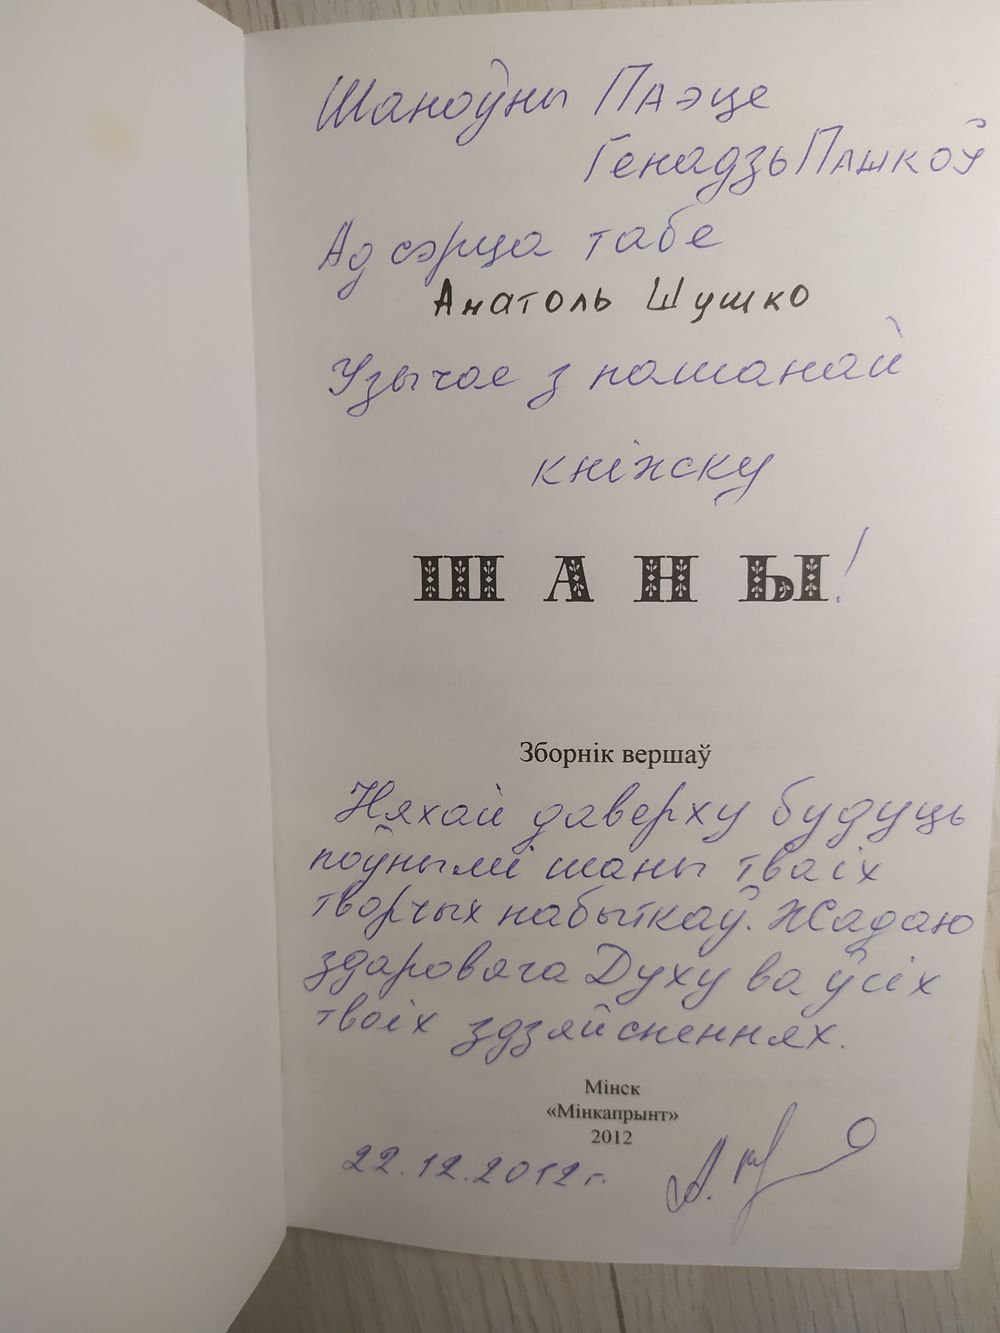 Шаноўны Паэце
Генадзь Пашкоў
Ад сэрца табе
Анатоль Шушко
Узычае з пашанай
кніжку
ШАНЫ!
Зборнік вершаў
Няхай даверху будуць
поўнымі шаны тваіх
творчых набыткаў. Жадаю
здаровага Духу ва ўсіх
тваіх здзяйсненнях.
Мінск
«Мінкапрынт»
2012
22.12.2012 г.